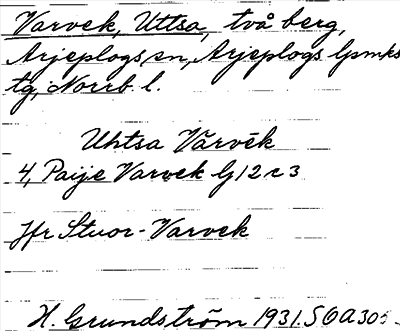 Varvek, Uttsa, två berg,
Arjeplogs sn, Arjeplogs lpmks
tg, Norrb. l.
Uhtsa Vărvēk
4, Paije Varvek bj 12 c 3
Jfr Stuor-Varvek
H. Grundström 1931. SOA 305